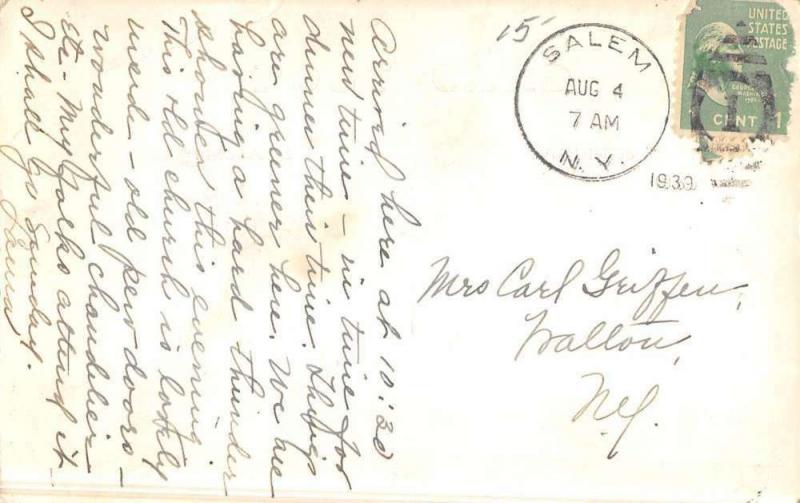 Arriv'd here at 10:30
new time - in time for
dinner their time. Things
are greener here. We are
having a hard thunder
shower this evening.
This old church is lovely
inside - old pew doors -
wonderful chandelier
etc. My folks attend it
I shall go Sunday.
Laura
15
SALEM
AUG 4
7 AM
N.Y.
1939
UNITED
STATES
POSTAGE
CENT 1
Mrs Carl Griffen,
Walton,
N.Y.